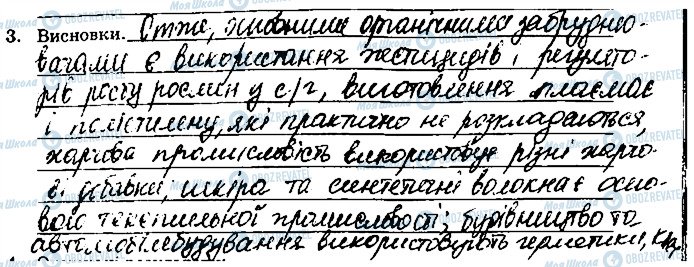 3. Висновки. Отже, основними органічними забрудню-
вачами є використання пестицидів і регулято-
рів росту рослин у с/г, виготовлення пластмас
і поліетилену, які практично не розкладаються,
харчова промисловість використовує різні харчо-
ві добавки, шкіра та синтетичні волокна є осно-
вою текстильної промисловості; будівництво та
автомобілебудування використовують герметики,